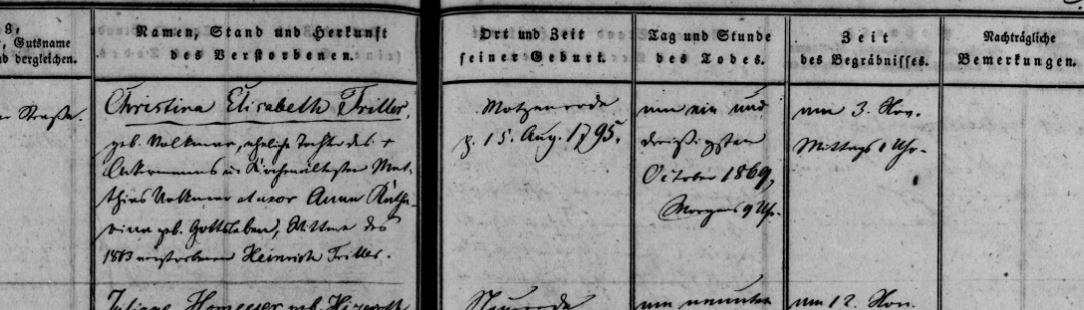 g,
, Gutsname
nd dergleichen.
Namen, Stand und Herkunft
des Verstorbenen.
Ort und Zeit
seiner Geburt.
Tag und Stunde
des Todes.
Zeit
des Begräbnisses.
Nachträgliche
Bemerkungen.
Straße.
Christina Elisabeth Triller,
geb. Volkmar, eheliche Tochter des +
Ackermanns und Kirchenältesten Mat-
thias Volkmar et uxor Anna Katha-
rina geb. Gottsleben, Wittwe des
1863 verstorbenen Heinrich Triller.
Motzenrode
d. 15. Aug. 1795.
am ein und
dreißigsten
October 1869,
Morgens 9 Uhr.
am 3. Nov.
Mittags 1 Uhr.
Juliane Homeyer geb.
Neurode
am neunten
am 12. Nov.